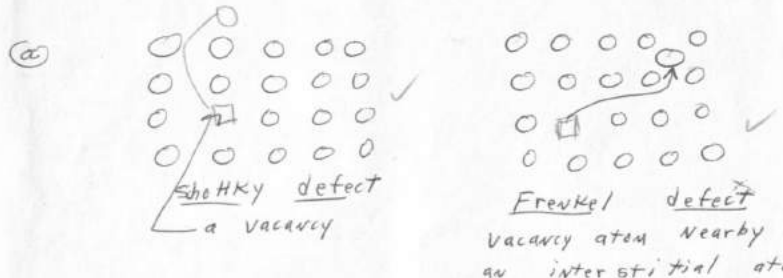 a
Shottky defect
a vacancy
Frenkel defect
vacancy atom nearby
an interstitial at